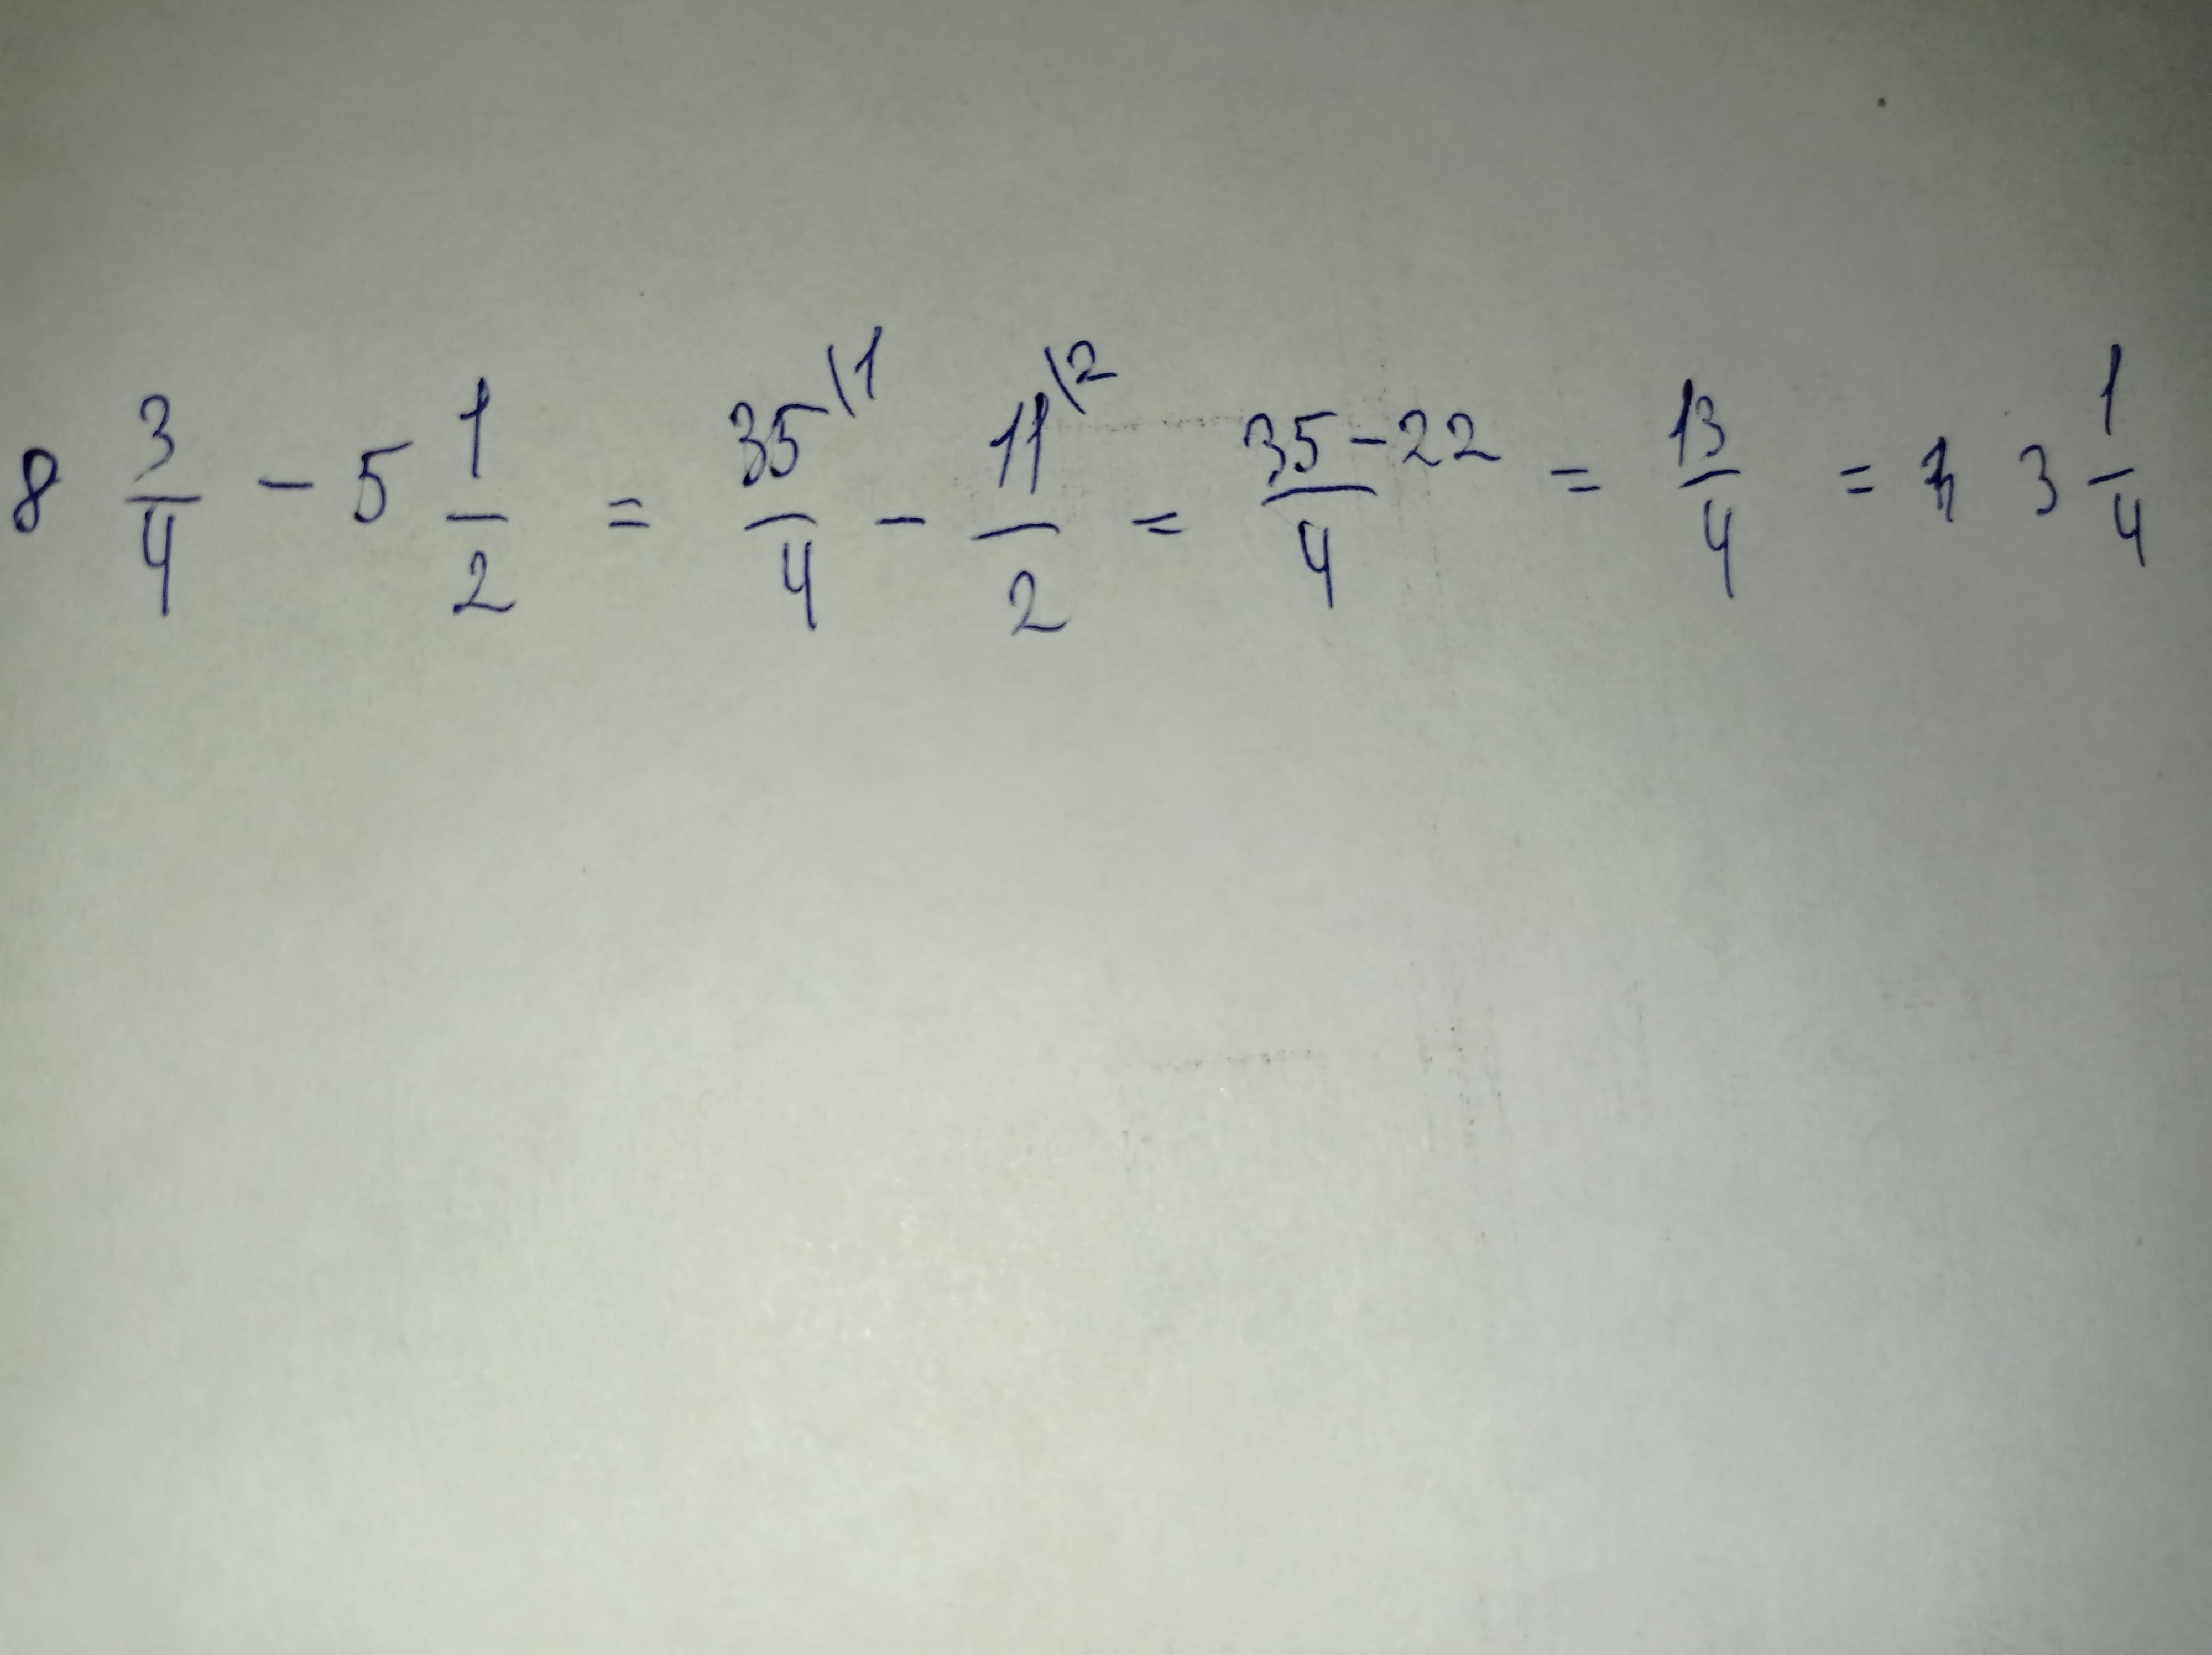 8 3/4 - 5 1/2 = 35\1/4 - 11\2/2 = 35-22/4 = 13/4 = 3 1/4